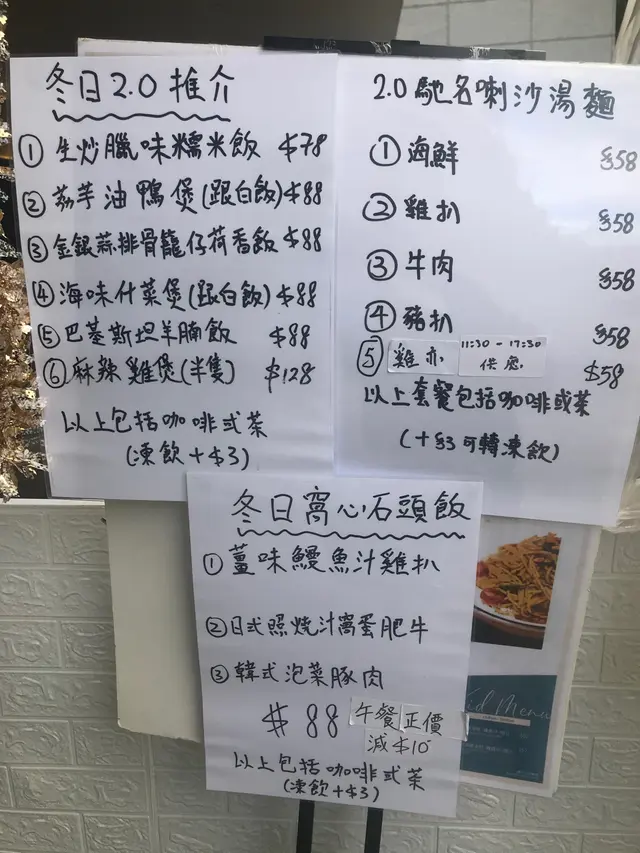 冬日2.0推介
① 生炒臘味糯米飯 $78
② 荔芋油鴨煲(跟白飯) $88
③ 金銀蒜排骨籠仔荷香飯 $88
④ 海味什菜煲(跟白飯) $88
⑤ 巴基斯坦羊腩飯 $88
⑥ 麻辣雞煲(半隻) $128
以上包括咖啡或茶
(凍飲+$3)
2.0馳名喇沙湯麵
① 海鮮 $58
② 雞扒 $58
③ 牛肉 $58
④ 豬扒 $58
⑤ 雞亦 11:30-17:30 供應 $58
以上套餐包括咖啡或茶
(+$3可轉凍飲)
冬日窩心石頭飯
① 薑味鰻魚汁雞扒
② 日式照燒汁窩蛋肥牛
③ 韓式泡菜豚肉
$88 午餐正價
減$10
以上包括咖啡或茶
(凍飲+$3)
Kid Menu